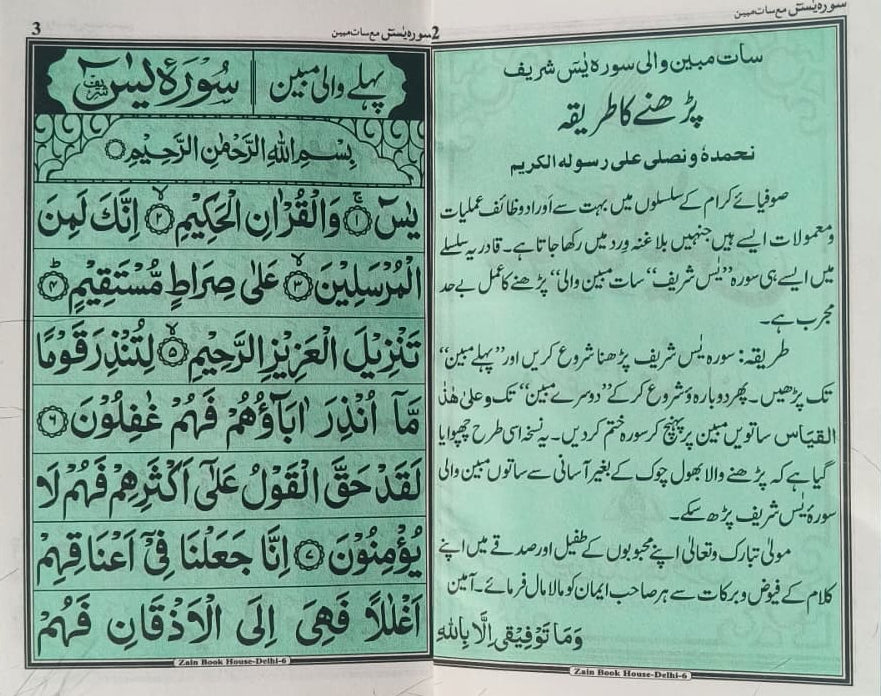 سورہ یٰسٓ مع سات مبین
2
سات مبین والی سورہ یٰسٓ شریف
پڑھنے کا طریقہ
نحمدہٗ و نصلی علی رسولہ الکریم
صوفیائے کرام کے سلسلوں میں بہت سے اَوراد و وظائف عملیات
و معمولات ایسے ہیں جنہیں بلاغنہ وِرد میں رکھا جاتا ہے۔ قادریہ سلسلے
میں ایسے ہی سورہ ”یٰسٓ شریف“ سات مبین والی“ پڑھنے کا عمل بے حد
مجرب ہے۔
طریقہ: سورہ یٰسٓ شریف پڑھنا شروع کریں اور ”پہلے مبین“
تک پڑھیں۔ پھر دوبارہ شروع کر کے ”دوسرے مبین“ تک و علیٰ ھٰذا
القیاس ساتویں مبین پر پہنچ کر سورہ ختم کر دیں۔ یہ نسخہ اسی طرح چھپوایا
گیا ہے کہ پڑھنے والا بھول چوک کے بغیر آسانی سے ساتوں مبین والی
سورۂ یٰسٓ شریف پڑھ سکے۔
مولیٰ تبارک و تعالیٰ اپنے محبوبوں کے طفیل اور صدقے میں اپنے
کلام کے فیوض و برکات سے ہر صاحب ایمان کو مالا مال فرمائے۔ آمین
وَمَا تَوْفِیْقِیْ اِلَّا بِاللّٰهِ
Zain Book House-Delhi-6
سورہ یٰسٓ مع سات مبین
3
پہلے والی مبین
سُوْرَۂ یٰسٓ شریف
بِسْمِ اللّٰهِ الرَّحْمٰنِ الرَّحِیْمِ
یٰسٓ ۚ﴿۱﴾ وَالْقُرْاٰنِ الْحَکِیْمِ ۙ﴿۲﴾ اِنَّکَ لَمِنَ
الْمُرْسَلِیْنَ ۙ﴿۳﴾ عَلٰی صِرَاطٍ مُّسْتَقِیْمٍ ؕ﴿۴﴾
تَنْزِیْلَ الْعَزِیْزِ الرَّحِیْمِ ۙ﴿۵﴾ لِتُنْذِرَ قَوْمًا
مَّآ اُنْذِرَ اٰبَآؤُهُمْ فَهُمْ غٰفِلُوْنَ ﴿۶﴾
لَقَدْ حَقَّ الْقَوْلُ عَلٰٓی اَکْثَرِهِمْ فَهُمْ لَا
یُؤْمِنُوْنَ ﴿۷﴾ اِنَّا جَعَلْنَا فِیْٓ اَعْنَاقِهِمْ
اَغْلٰلًا فَهِیَ اِلَی الْاَذْقَانِ فَهُمْ
Zain Book House-Delhi-6